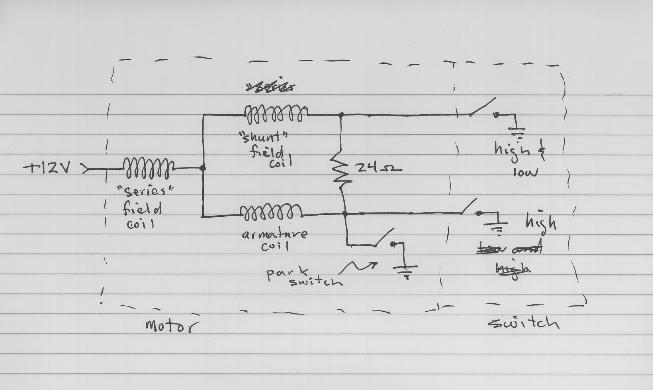 "shunt"
field
coil
high &
low
+12V
24Ω
"series"
field
coil
armature
coil
high
park
switch
motor
switch